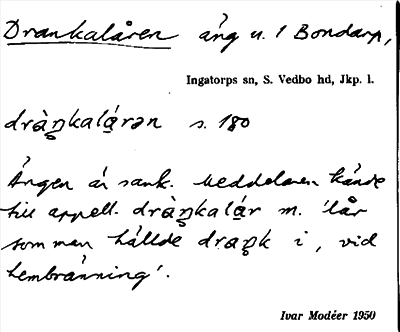 Drankalåren äng u. 1 Bondarp,
Ingatorps sn, S. Vedbo hd, Jkp. l.
dràŋ̥kalá̱rən s. 180
Ängen är sank. Meddelaren kände
till appell. dràŋ̥kalá̱r m. 'lår
som man hällde draŋ̥k i, vid
hembränning'.
Ivar Modéer 1950